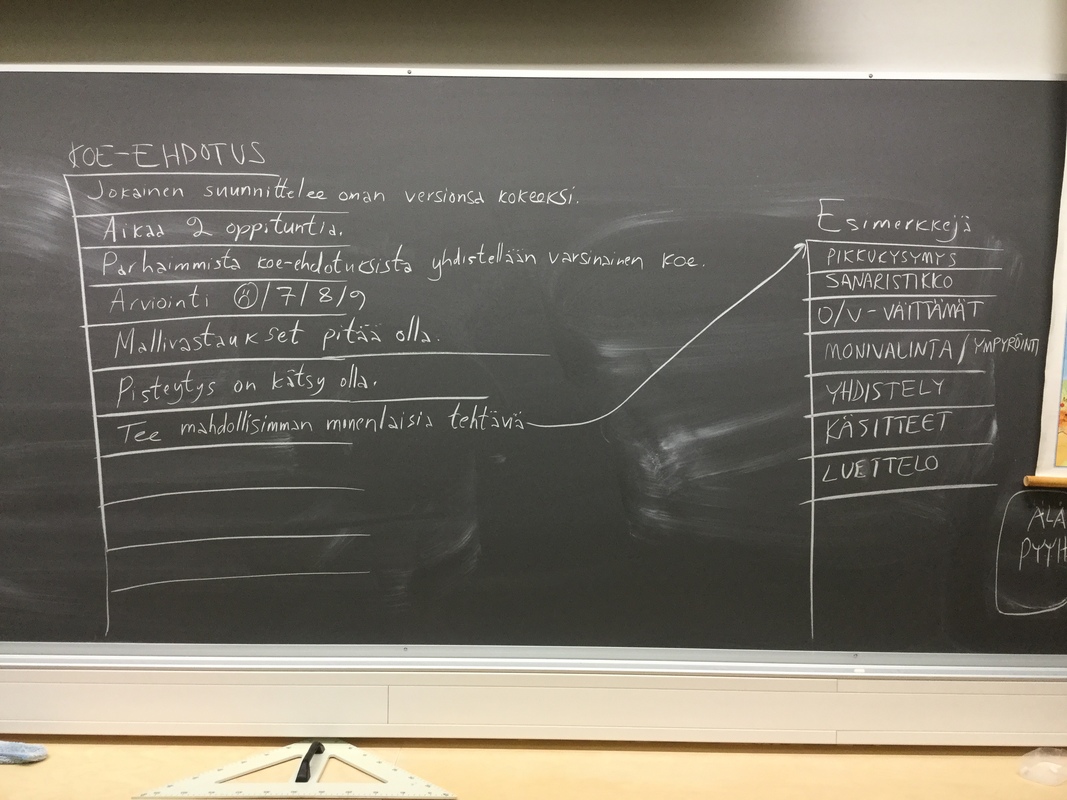 KOE-EHDOTUS
Jokainen suunnittelee oman versionsa kokeeksi.
Aikaa 2 oppituntia.
Parhaimmista koe-ehdotuksista yhdistellään varsinainen koe.
Arviointi /7/8/9
Mallivastaukset pitää olla.
Pisteytys on kätsy olla.
Tee mahdollisimman monenlaisia tehtäviä
Esimerkkejä
PIKKUKYSYMYS
SANARISTIKKO
O/V-VÄITTÄMÄT
MONIVALINTA/YMPYRÖINTI
YHDISTELY
KÄSITTEET
LUETTELO
ÄLÄ
PYYH